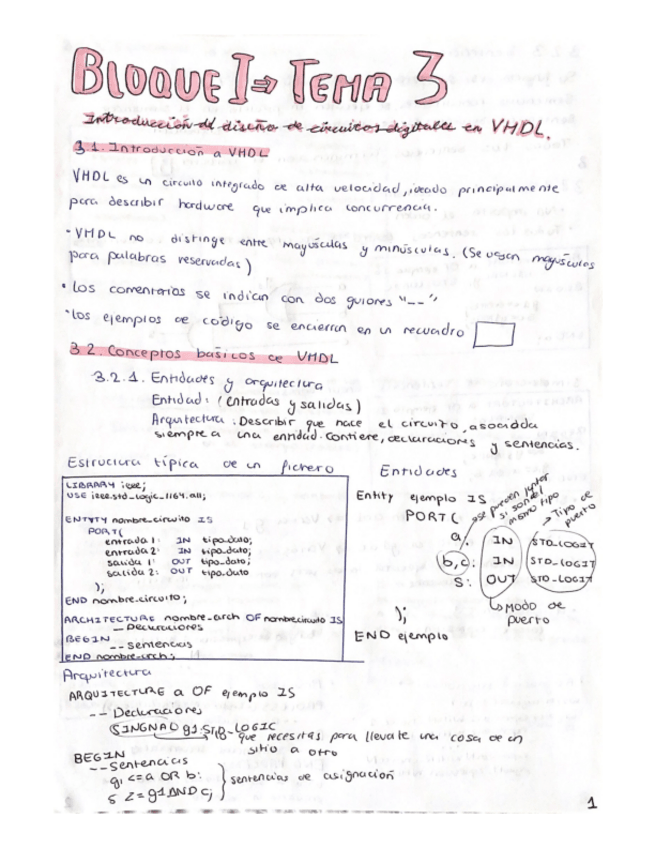 BLOQUE I ⇒ TEMA 3
Introducción del diseño de circuitos digitales en VHDL.
3.1. Introducción a VHDL
VHDL es un circuito integrado de alta velocidad, ideado principalmente
para describir hardware que implica concurrencia.
- VHDL no distinge entre mayúsculas y minúsculas. (Se usan mayúsculas
para palabras reservadas)
• Los comentarios se indican con dos guiones "--"
• los ejemplos de código se encierran en un recuadro
3.2. Conceptos basicos de VHDL
3.2.1. Entidades y arquitectura
Entidad: (entradas y salidas)
Arquitectura: Describir que hace el circuito, asociadda
siempre a una entidad. Contiene, declaraciones y sentencias.
Estructura típica de un fichero
LIBRARY ieee;
USE ieee.std_logic_1164.all;
ENTITY nombre_circuito IS
PORT(
entrada 1: IN tipo_dato;
entrada 2: IN tipo_dato;
salida 1: OUT tipo_dato;
salida 2: OUT tipo_dato
);
END nombre_circuito;
ARCHITECTURE nombre_arch OF nombrecircuito IS
-- Declaraciones
BEGIN
-- sentencias
END nombre_arch;
Entidades
Entity ejemplo IS
PORT( → se pueden juntar
si son del
mismo tipo
→ Tipo de
puerto
a: IN STD_LOGIT
b,c: IN STD_LOGIT
s: OUT STD_LOGIT
↳ Modo de
puerto
);
END ejemplo
Arquitectura
ARQUITECTURE a OF ejemplo IS
-- Declaraciones
SINGNAL g1: STD_LOGIC
que necesitas para llevate una cosa de un
sitio a otro
BEGIN
-- Sentencias
g1 <= a OR b;
s Z= g1 AND c;
sentencias de asignacion
1